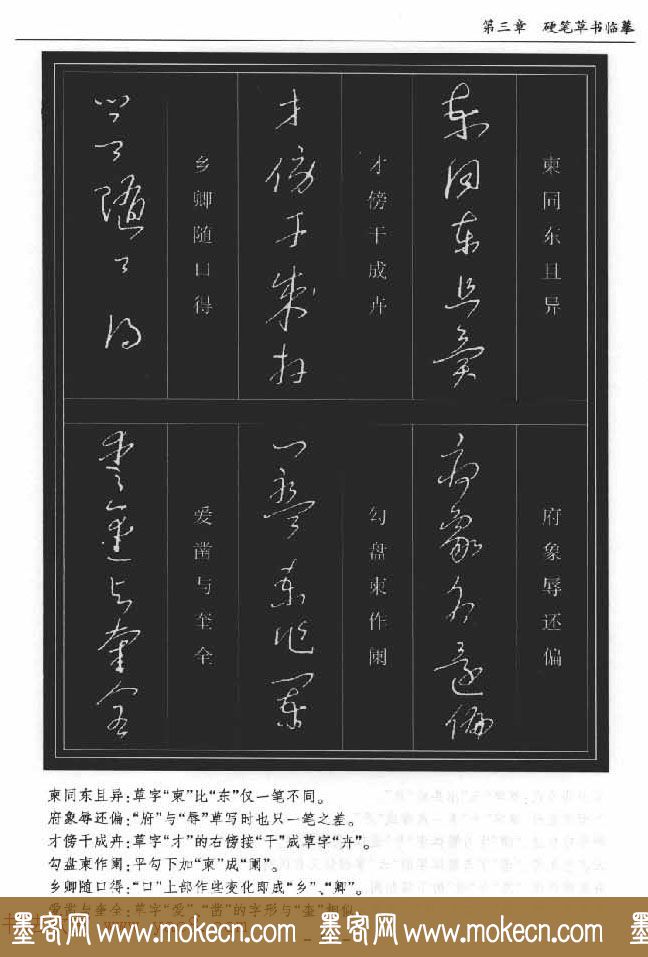 第三章 硬笔草书临摹
柬同东且异
才傍干成卉
乡卿随口得
府象辱还偏
勾盘柬作阑
爱凿与奎全
柬同东且异：草字“柬”比“东”仅一笔不同。
府象辱还偏：“府”与“辱”草写时也只一笔之差。
才傍干成卉：草字“才”的右傍接“干”成草字“卉”。
勾盘柬作阑：平勾下加“柬”成“阑”。
乡卿随口得：“口”上部作些变化即成“乡”、“卿”。
爱凿与奎全：草字“爱”、“凿”的字形与“奎”相似
墨客网 www.mokecn.com 墨客网 www.mokecn.com